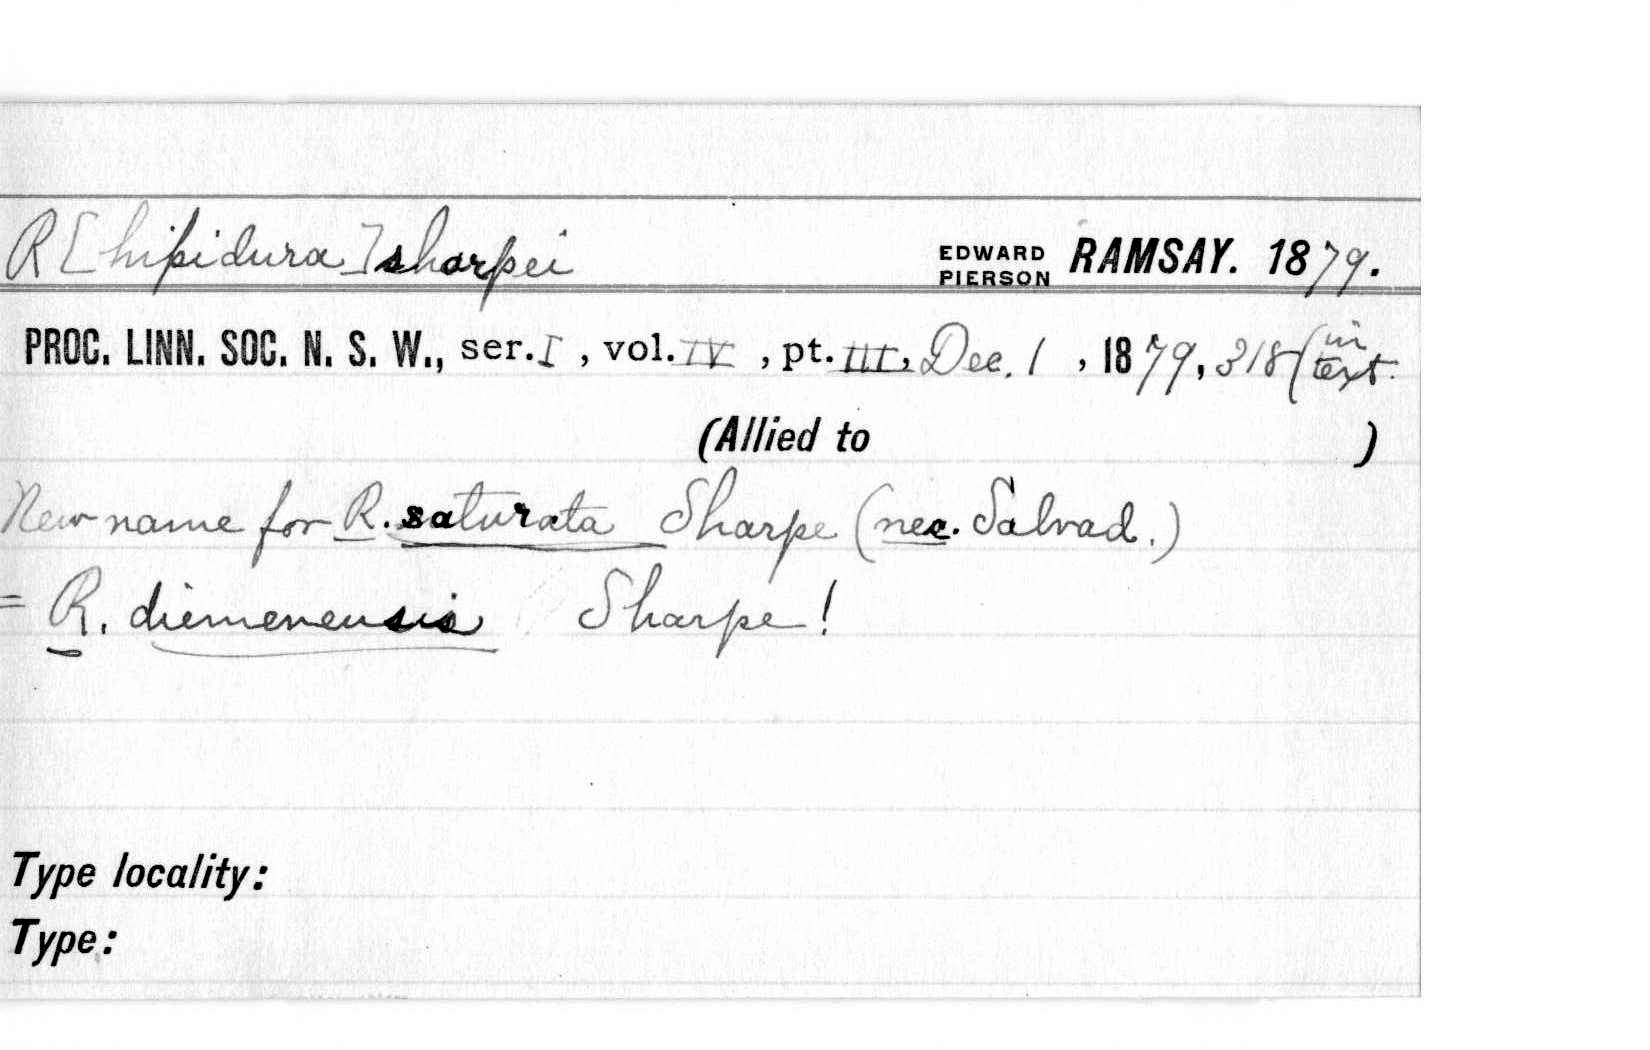 R[hipidura] sharpei EDWARD PIERSON RAMSAY. 1879.
PROC. LINN. SOC. N. S. W., ser. I, vol. IV, pt. III, Dec. 1, 1879, 318 (in text.
(Allied to )
New name for R. saturata Sharpe (nec. Salvad.)
= R. diemenensis Sharpe!
Type locality:
Type: